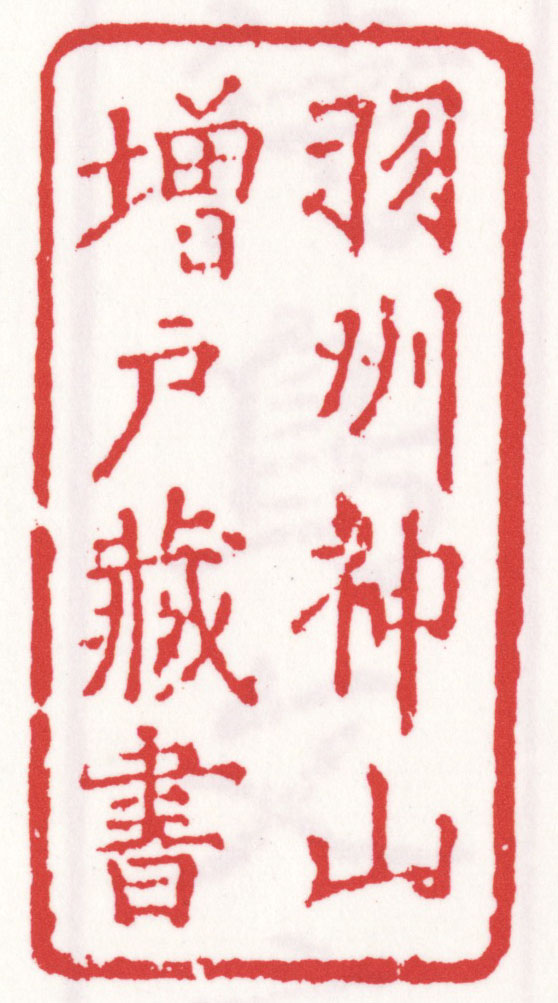 羽州神山
増戸藏書